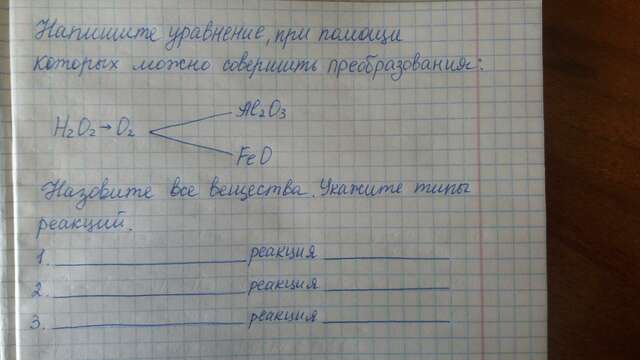 Напишите уравнение, при помощи
которых можно совершить преобразования:
Al₂O₃
H₂O₂→O₂
FeO
Назовите все вещества. Укажите типы
реакций.
1. ____________ реакция ________
2. ____________ реакция ________
3. ____________ реакция ________